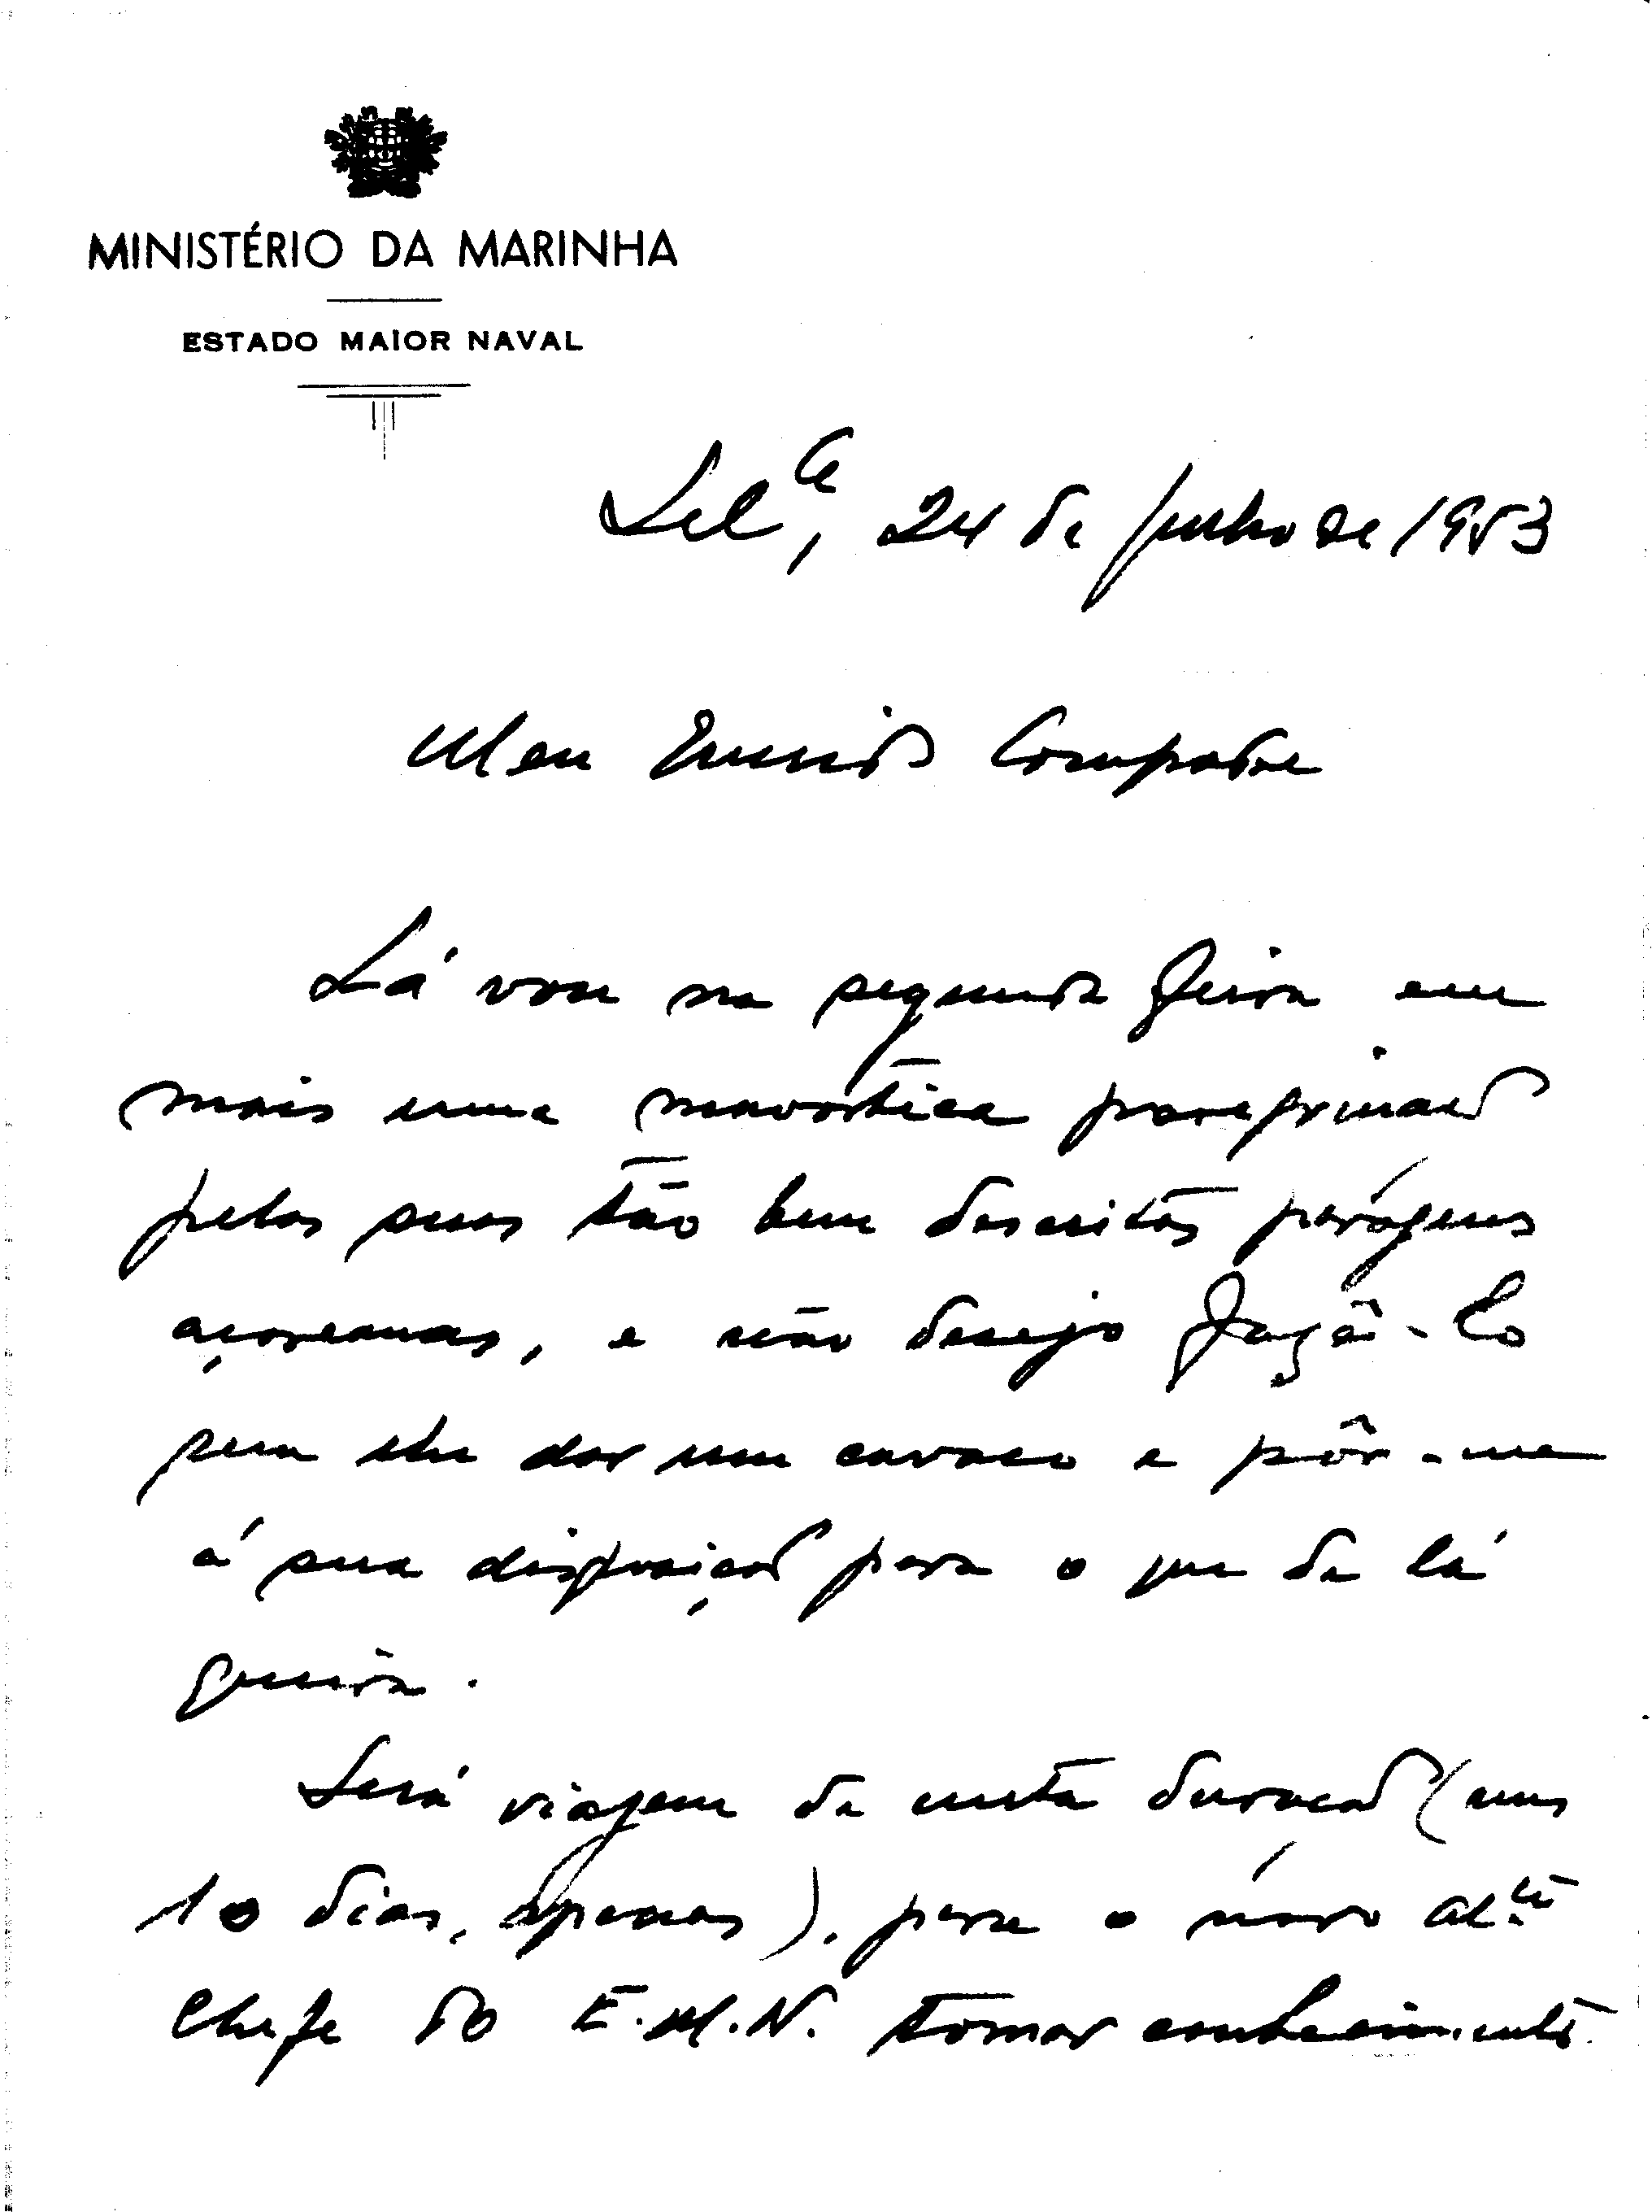 MINISTÉRIO DA MARINHA
ESTADO MAIOR NAVAL
24 de Julho de 1953
Meu Querido Compadre
Lá vou na segunda feira em
mais uma mavórtica peregrinação
pelas suas tão bem descritas paragens
açoreanas, e não desejo fazê-lo
sem lhe dar um cavaco e pôr-me
á sua disposição para o que de lá
queira.
Será viagem de curta duração (uns
10 dias, apenas), para o nóvo Al.te
Chefe do E.M.N. tomar conhecimento